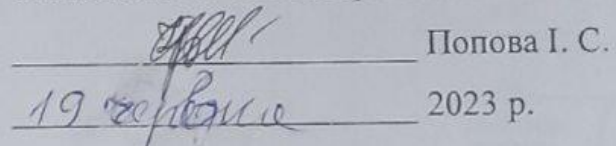 Попова І. С.
19 червня 2023 р.